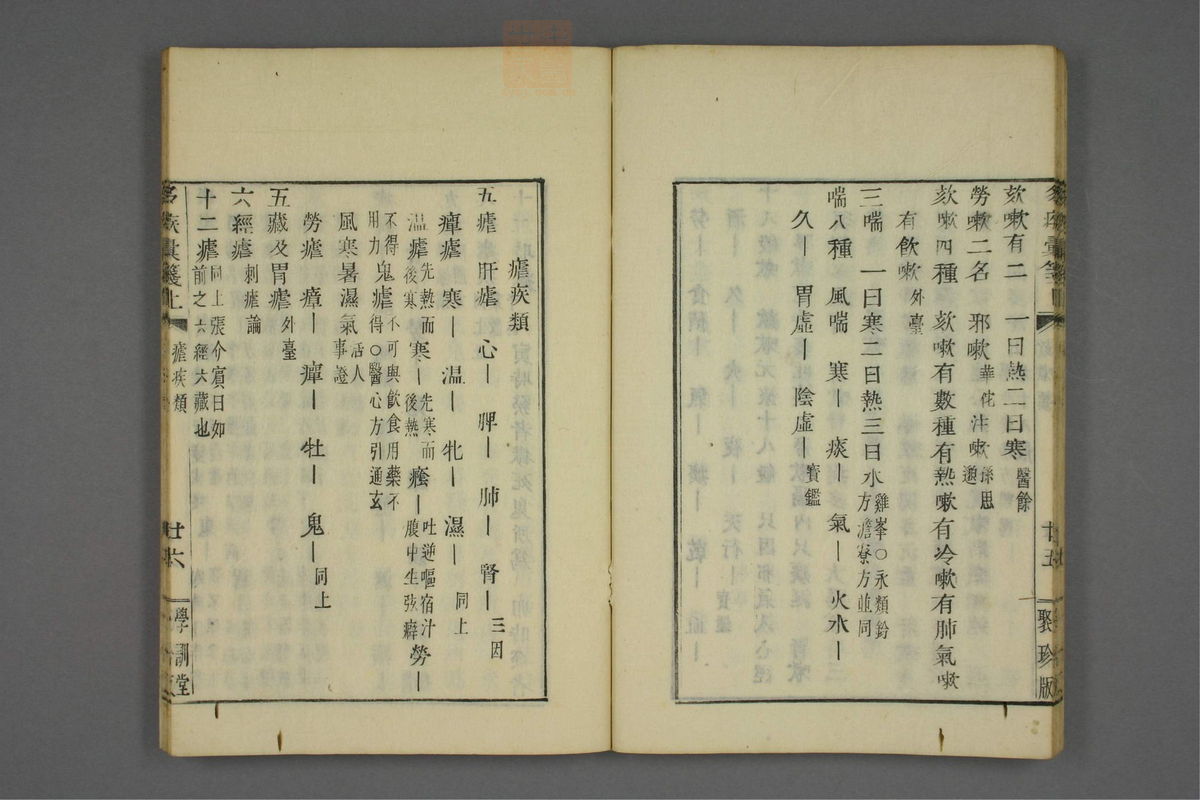 欬嗽有二　一曰熱二曰寒醫餘
勞嗽二名　邪嗽華佗注嗽孫思邈
欬嗽四種　欬嗽有數種有熱嗽有冷嗽有肺氣嗽
有飲嗽外臺
三喘　一曰寒二曰熱三曰水雞峯方○永類鈐方澹寮方並同
喘八種　風喘　寒｜　痰｜　氣｜　火｜　水｜
久｜　胃虛｜　陰虛｜寶鑑
廿五　聚珍版
瘧疾類
五瘧　肝瘧　心｜　脾｜　肺｜　腎｜三因
瘴瘧　寒｜　温｜　牝｜　濕｜同上
温瘧先熱而後寒寒｜先寒而後熱痎｜吐逆嘔宿汁腹中生弦癖勞｜
不得用力鬼瘧不可與飲食用藥不得○醫心方引通玄
風寒暑濕氣活人事證
勞瘧　瘴｜　癉｜　牡｜　鬼｜同上
五藏及胃瘧外臺
六經瘧刺瘧論
十二瘧同上張介賓曰如前之六經六藏也
瘧疾類　廿六　學訓堂